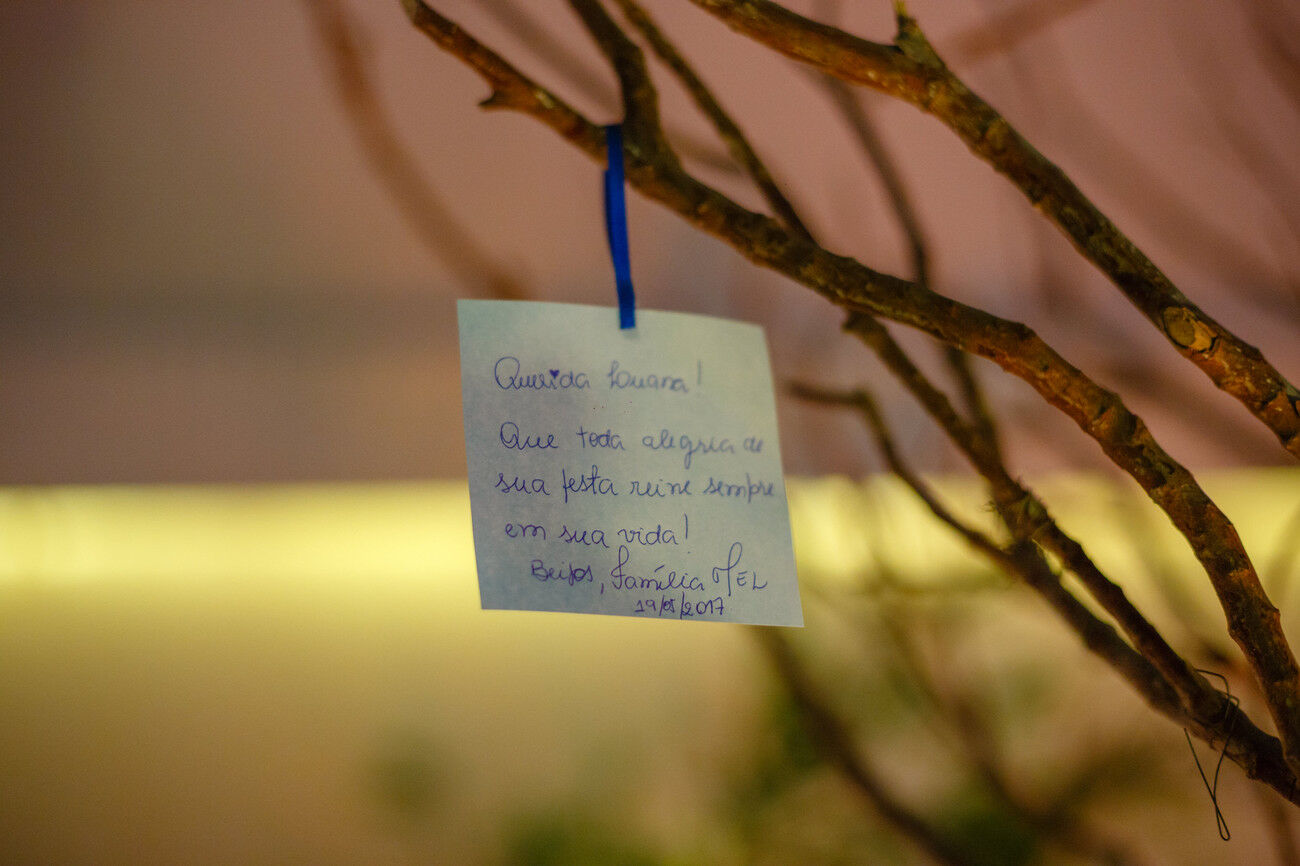 Querida Louana!
Que toda alegria de
sua festa reine sempre
em sua vida!
Beijos, Família MEL
19/05/2017